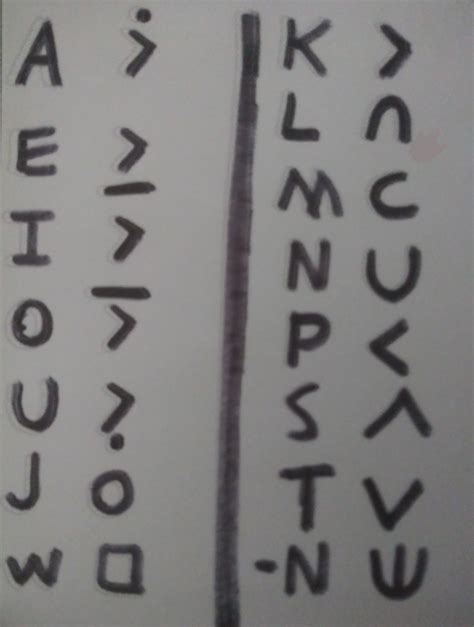 A >̇
E >̲
I >
O >̅
U >̣
J O
W □
K >
L ∩
M C
N U
P <
S ∧
T V
-N Ψ